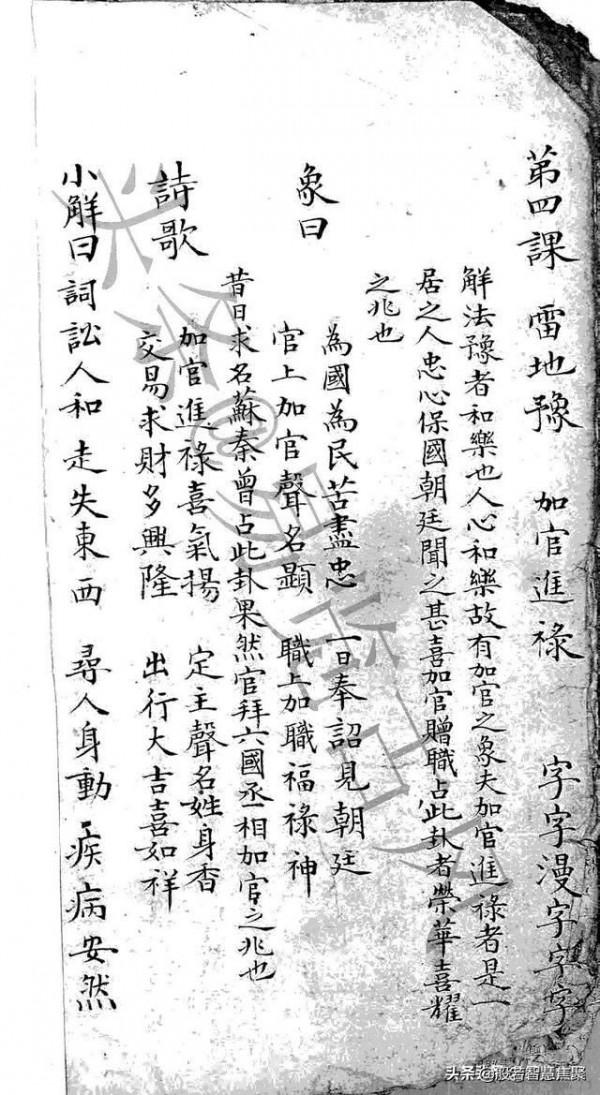 第四課 雷地豫 加官進祿 字字漫字字字
解法豫者和樂也人心和樂故有加官之象夫加官進祿者是一
居之人忠心保國朝廷聞之甚喜加官贈職占此卦者榮華喜耀
之兆也
象曰
為國為民苦盡忠 一日奉詔見朝廷
官上加官聲名顯 職上加職福祿神
昔日求名蘇秦曾占此卦果然官拜六國丞相加官之兆也
詩歌
加官進祿喜氣揚 定主聲名姓身香
交易求財多興隆 出行大吉喜如祥
小解曰 詞訟人和 走失東西 尋人身動 疾病安然
头条@般若智慧焦聚